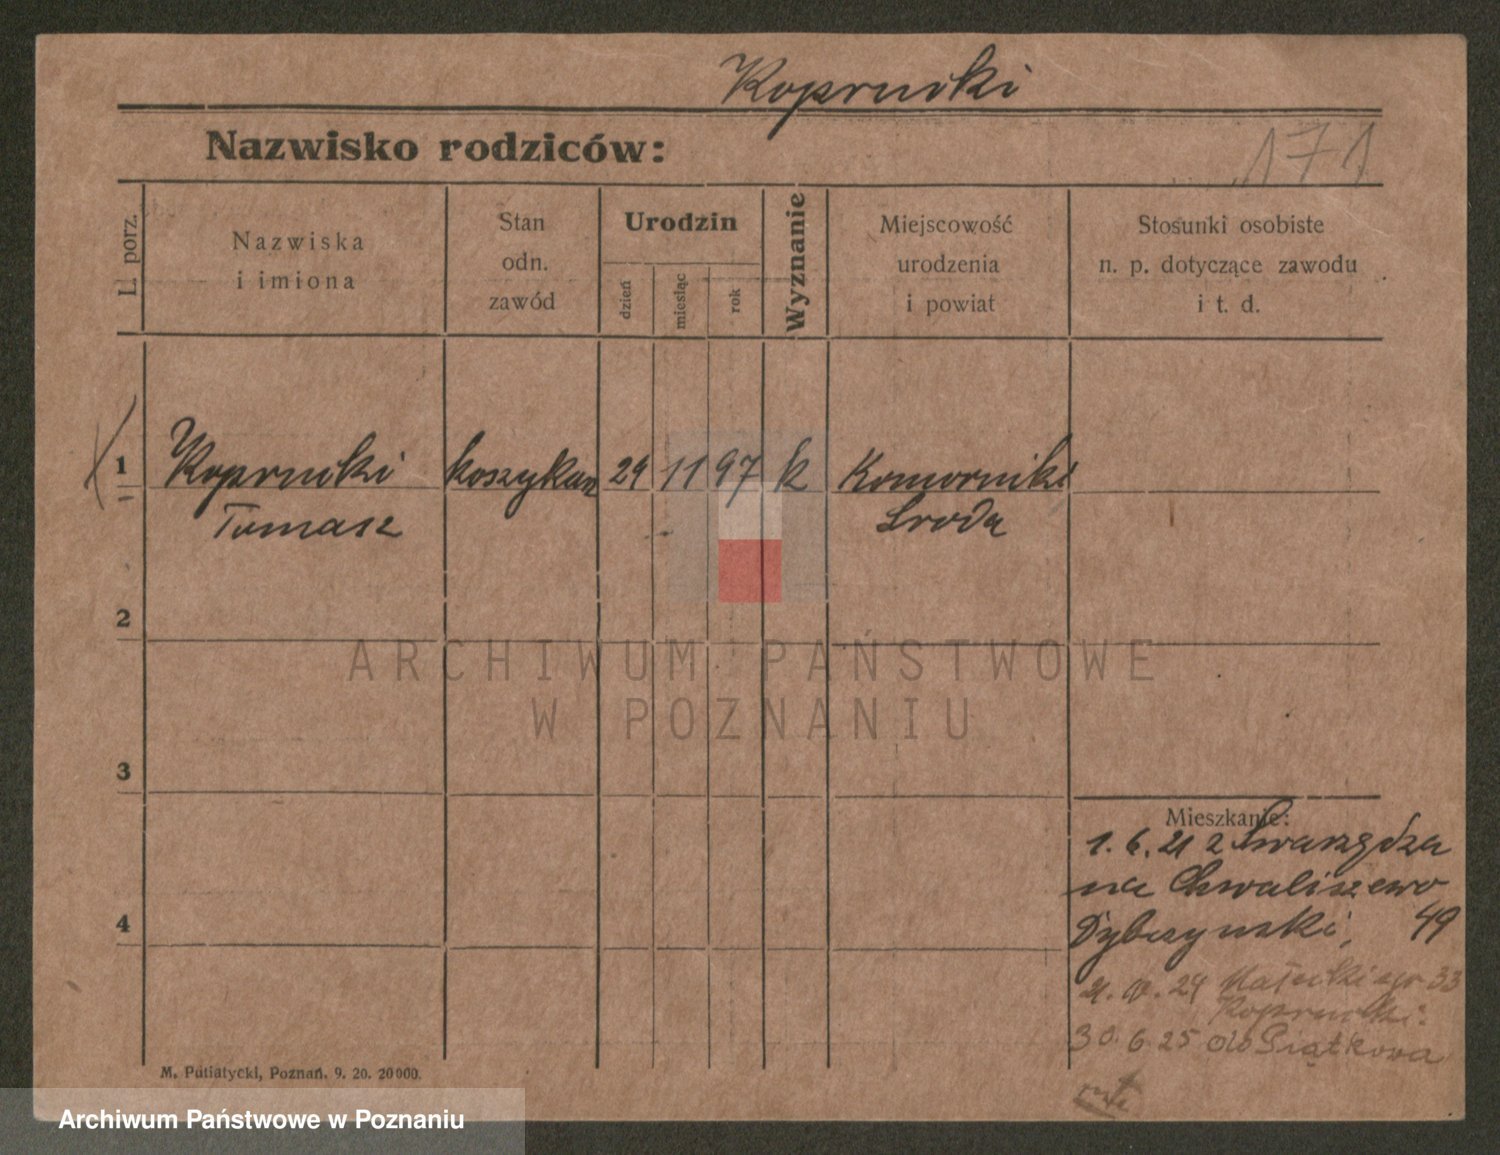 Koprucki
Nazwisko rodziców:
171
L. porz.
Nazwiska
i imiona
Stan
odn.
zawód
Urodzin
dzień
miesiąc
rok
Wyznanie
Miejscowość
urodzenia
i powiat
Stosunki osobiste
n. p. dotyczące zawodu
i t. d.
1 Koprucki koszykarz 29 11 97 k Komorniki
Tomasz Sroda
2
3
4
Mieszkanie:
1. 6. 21 z Swarzędza
na Chwaliszewo
49
21. 24 33
Koprucki:
30. 6. 25 do
M. Putiatycki, Poznań. 9. 20. 20000.
ARCHIWUM PAŃSTWOWE
W POZNANIU
Archiwum Państwowe w Poznaniu